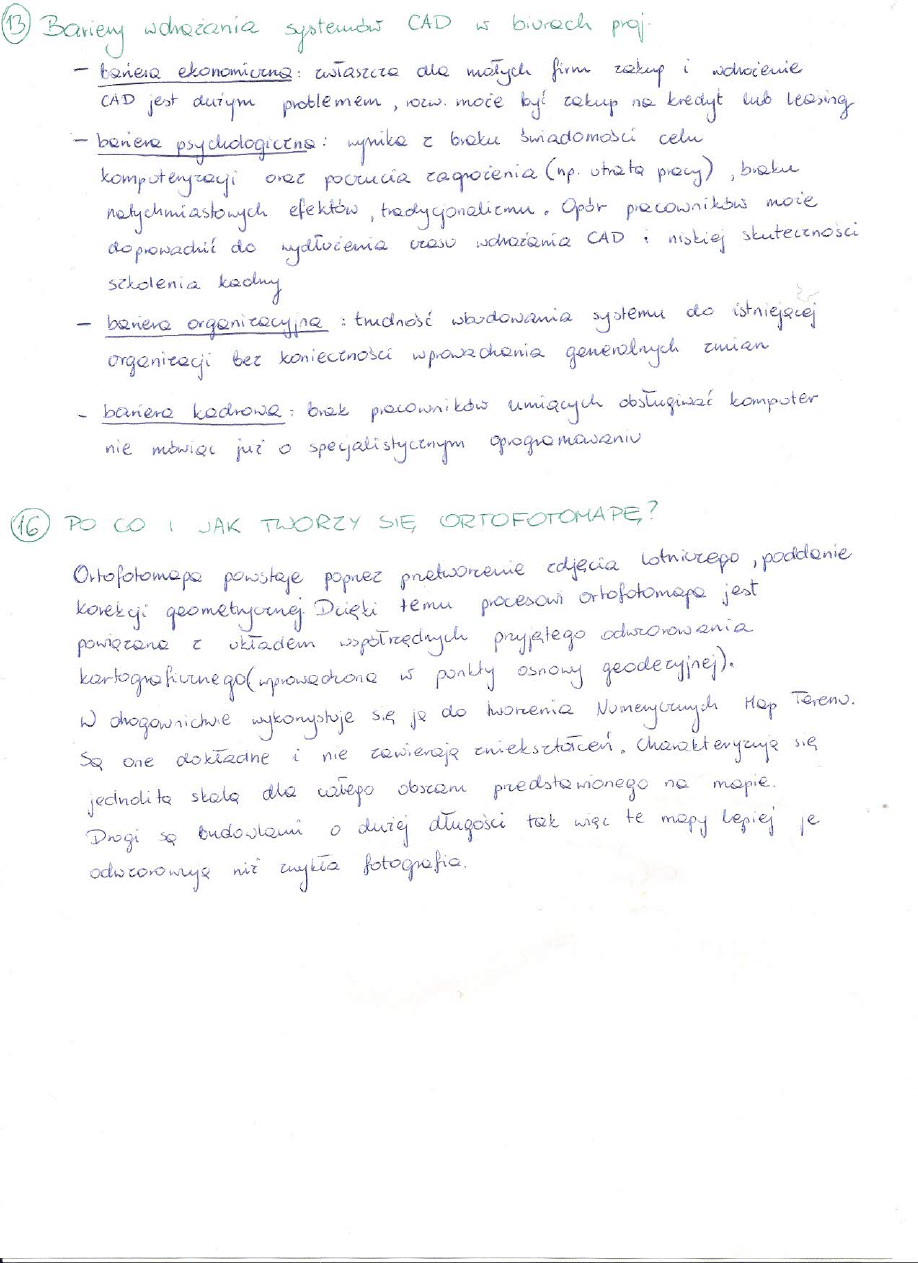 13 Bariery wdrażania systemów CAD w biurach proj.
- bariera ekonomiczna: zwłaszcza dla małych firm zakup i wdrożenie
CAD jest dużym problemem, rozw. może być zakup na kredyt lub leasing
- bariera psychologiczna: wynika z braku świadomości celu
komputeryzacji oraz poczucia zagrożenia (np. utrata pracy), braku
natychmiastowych efektów, tradycjonalizmu. Opór pracowników może
doprowadzić do wydłużenia czasu wdrażania CAD i niskiej skuteczności
szkolenia kadry
- bariera organizacyjna: trudność wbudowania systemu do istniejącej
organizacji bez konieczności wprowadzania generalnych zmian
- bariera kadrowa: brak pracowników umiących obsługiwać komputer
nie mówiąc już o specjalistycznym oprogramowaniu
16 PO CO I JAK TWORZY SIĘ ORTOFOTOMAPĘ?
Ortofotomapa powstaje poprzez przetworzenie zdjęcia lotniczego, poddanie
korekcji geometrycznej. Dzięki temu procesowi ortofotomapa jest
powiązana z układem współrzędnych przyjętego odwzorowania
kartograficznego (wprowadzona w punkty osnowy geodezyjnej).
W drogownictwie wykorzystuje się ją do tworzenia Numerycznych Map Terenu.
Są one dokładne i nie zawierają zniekształceń. Charakteryzują się
jednolitą skalą dla całego obszaru przedstawionego na mapie.
Drogi są budowlami o dużej długości tak więc te mapy lepiej je
odwzorowują niż zwykła fotografia.